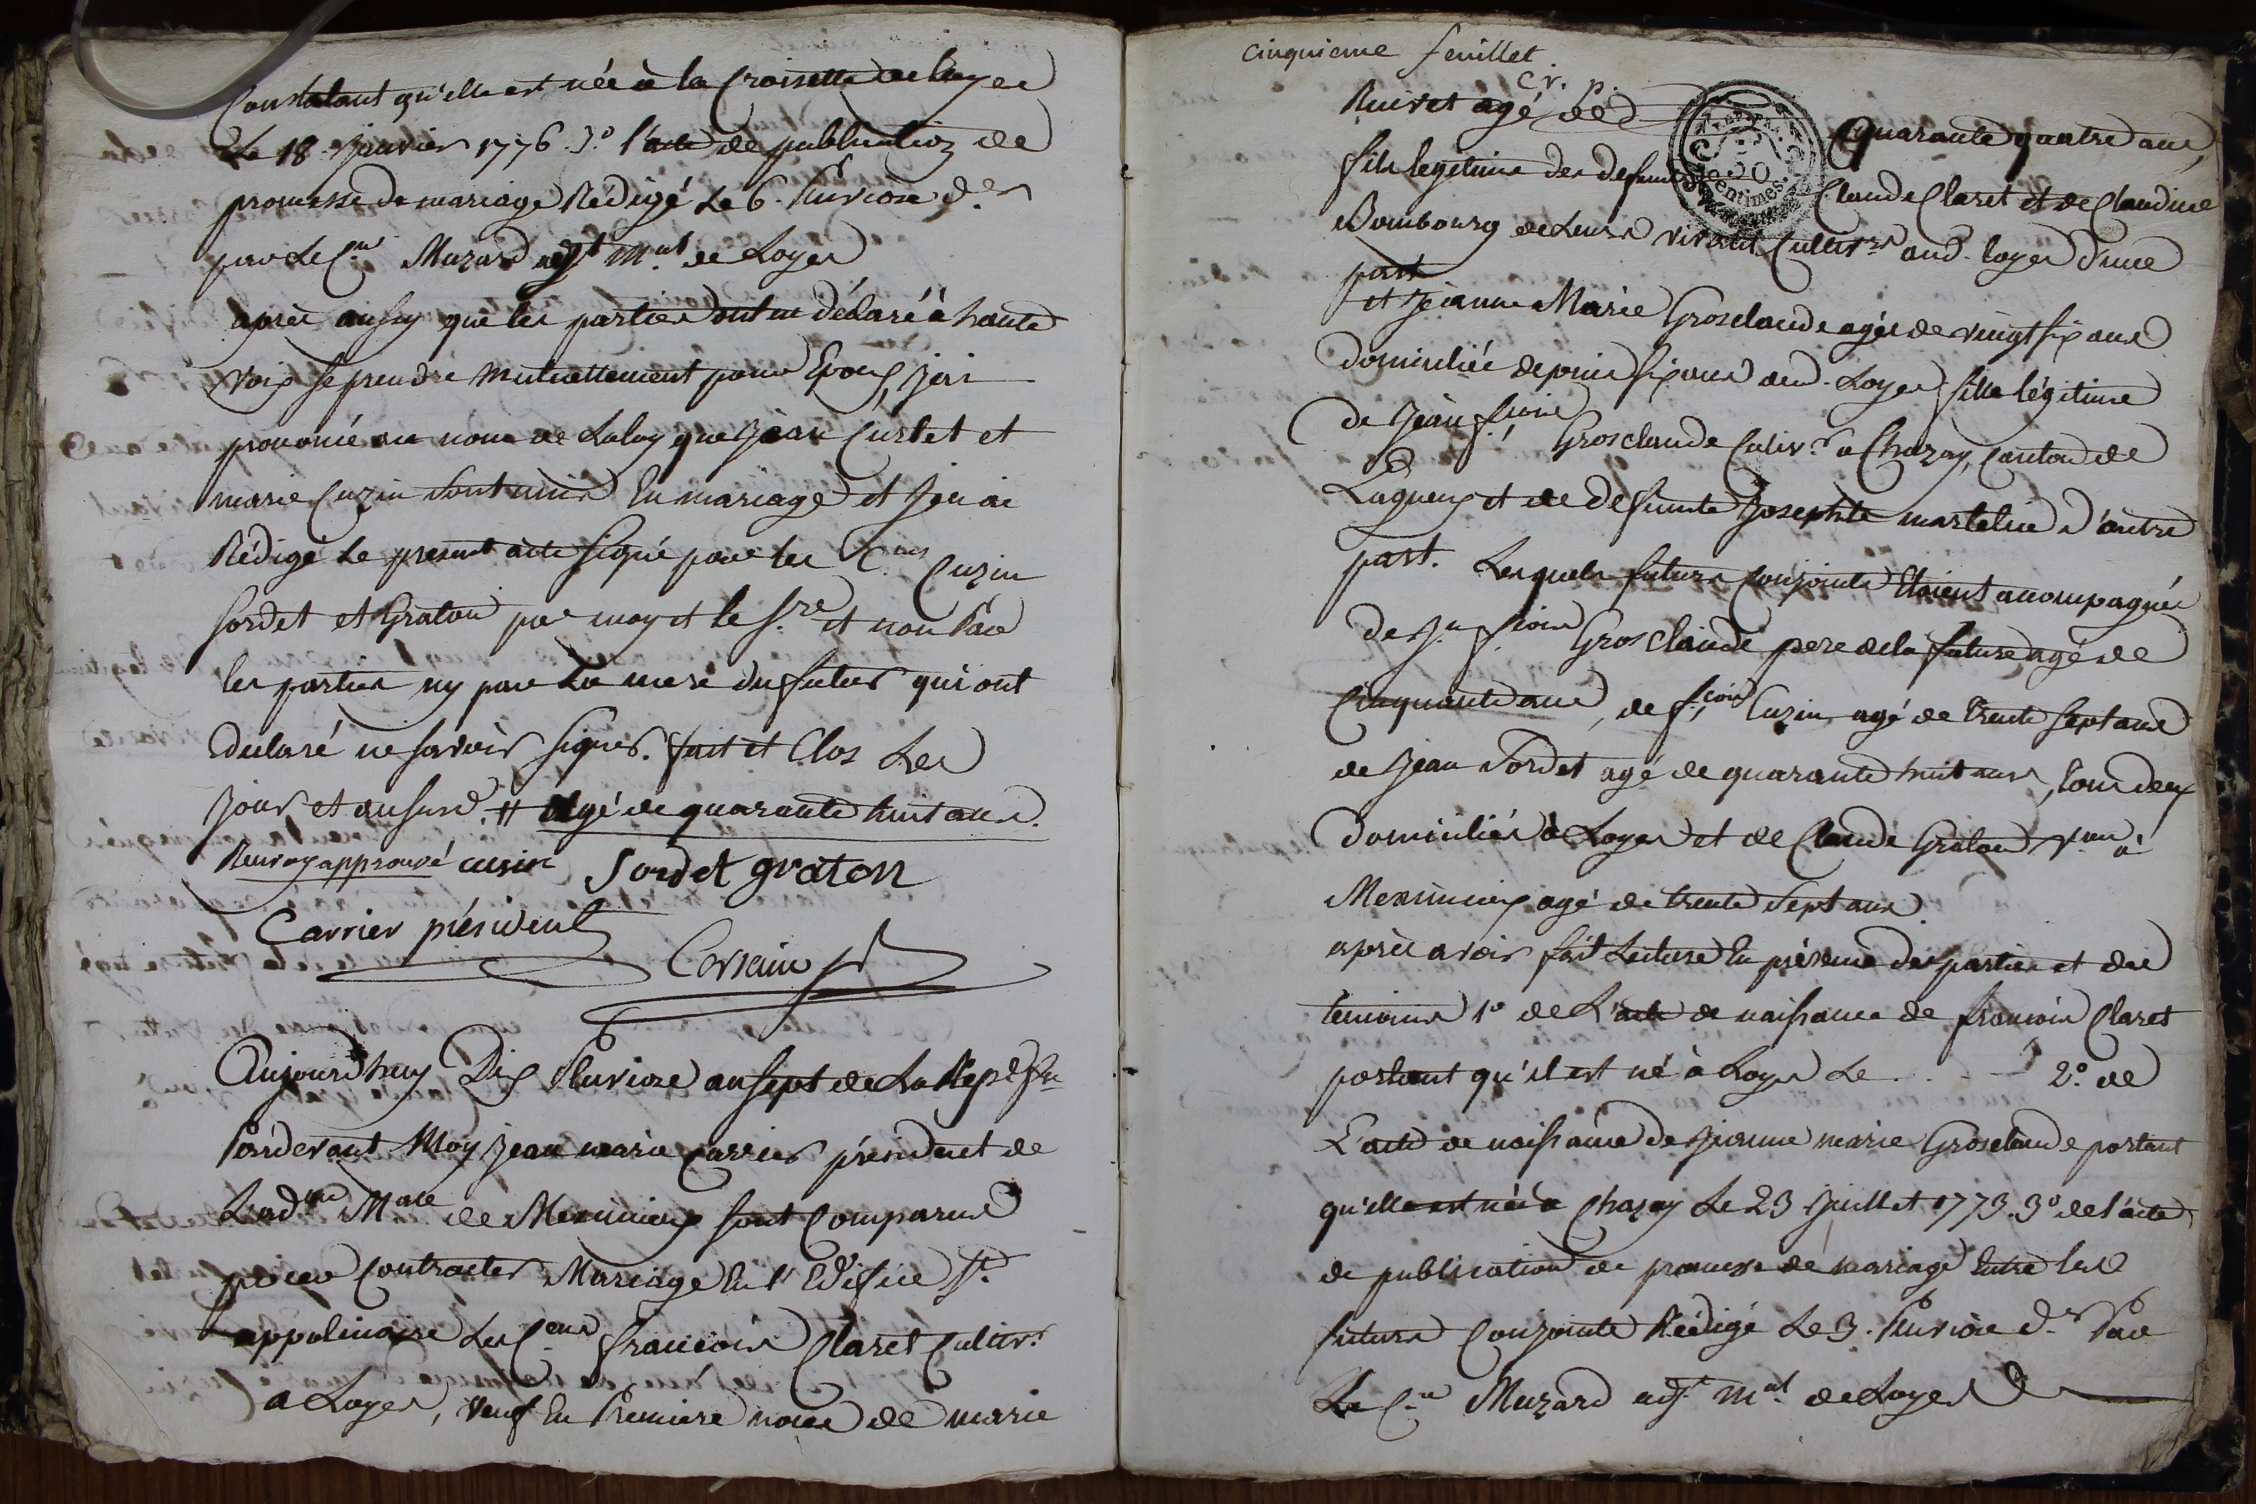 Constatant qu'elle est née à la Croisette de Loyes
Le 18 Janvier 1776. 3.° l'acte de publication de
promesse de mariage Rédigé Le 6. Pluviose d.er
par Le C.en Muzard agt m.al de Loyes
après aussy que les parties ont eu déclaré à haute
voix se prendre mutuellement pour Epoux, j'ai
prononcé au nom de La loy que Jean Curtet et
marie Cuzin sont unis En mariage et j'en ai
Rédigé Le present acte signé par les C.ens Cuzin
Sordet et Graton par moy et le S.re et non Par
les parties ny par La mere du futur qui ont
declaré ne savoir signer. fait et Clos Les
jour et an susd. # agé de quarante huit ans.
Renvoy approuvé cusin Sordet graton
Carrier président
Corsain
Aujourd'huy Dix Pluviose an sept de La Rep. fse
Pardevant Moy Jean marie Carrier président de
L'ad.on M.ale de Meximieux sont Comparus
pour Contracter Mariage En l'Edifice St.
appolinaire Les C.ens François Claret Cultiv.r
a Loyes, veuf En Premiere noces de marie
cinquieme feuillet
c. v. p.
Ruivet agé de Quarante quatre ans,
fils legitime des defunts Claude Claret et de Claudine
Bombourg de Leurs vivant Cultiv.rs aud. Loyes d'une
part
et Jeanne Marie Grosclaude agée de vingt six ans
Domiciliée depuis six ans aud. Loyes fille légitime
de Jean f.çois Grosclaude Cultiv.r a Chazay, Canton de
Lagnieux et de defunte Josephte marteline d'autre
part. Lesquels futurs Conjoints Etoient accompagnés
de J.n f.çois Gros claude pere de la future agé de
Cinquante ans, de f.çois Cuzin agé de trente sept ans
de Jean Sordet agé de quarante huit ans, tous deux
Domiciliés à Loyes et de Claude Graton à
Meximieux agé de trente Sept ans.
après avoir fait Lecture En présence des parties et des
temoins 1° de L'acte de naissance de françois Claret
portant qu'il est né à Loyes Le . . - - 2.° de
L'acte de naissance de Jeanne marie Grosclaude portant
qu'elle est née a Chazay Le 23 Juillet 1773. 3° de l'acte
de publication de promesse de mariage Entre les
futurs Conjoints Rédigé Le 3. Pluviose d.er Par
Le C.en Muzard agt. m.al de Loyes
20
Centimes.